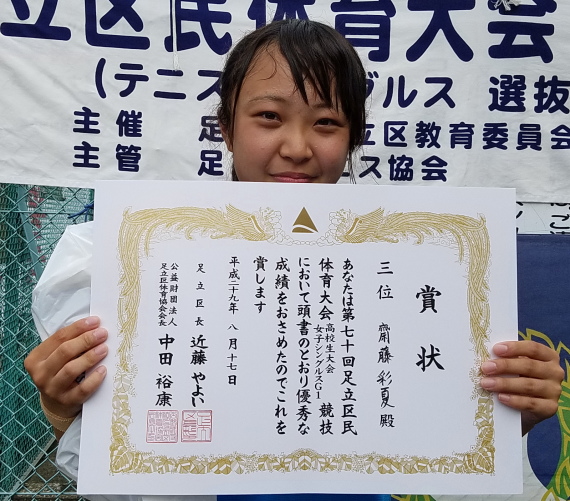 立区民体育大会
(テニス
グルス 選抜
主催 足
立区教育委員会
主管 足
ス協会
賞状
三位 齋藤彩夏殿
あなたは第七十回足立区民
体育大会 高校生大会 女子シングルスG1 競技
において頭書のとおり優秀な
成績をおさめたのでこれを
賞します
平成二十九年八月十七日
足立区長 近藤やよい
公益財団法人
足立区体育協会会長 中田裕康